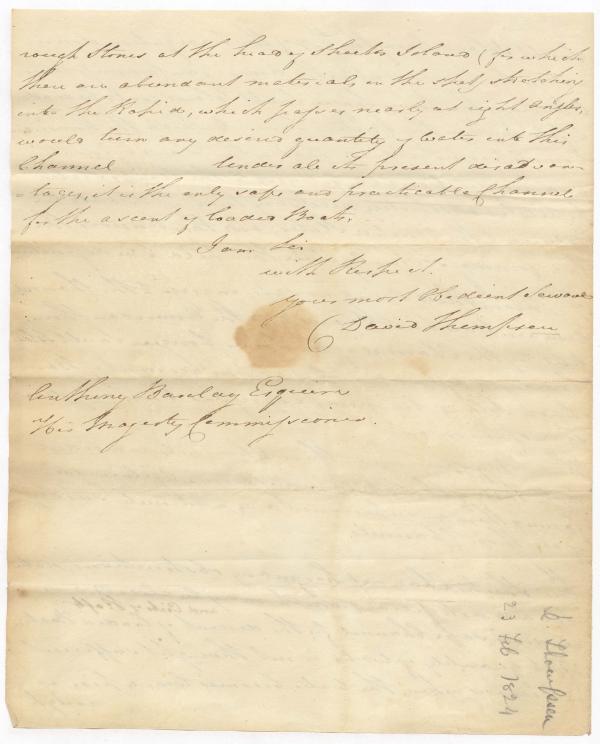 rough Stones at the head of Sheeks Island (for which
there are abundant materials on the spot) stretching
into the Rapid, which passes nearly at right Angles,
would turn any desired quantity of Water into this
Channel Under all its present disadvan
-tages, it is the only safe and practicable Channel
for the ascent of loaded Boats.
I am Sir
with Respect.
Your most Obedient Servant
David Thompson
Anthony Barclay Esquire
His Majestys Commissioner.
D. Thompson
23 Feb. 1824